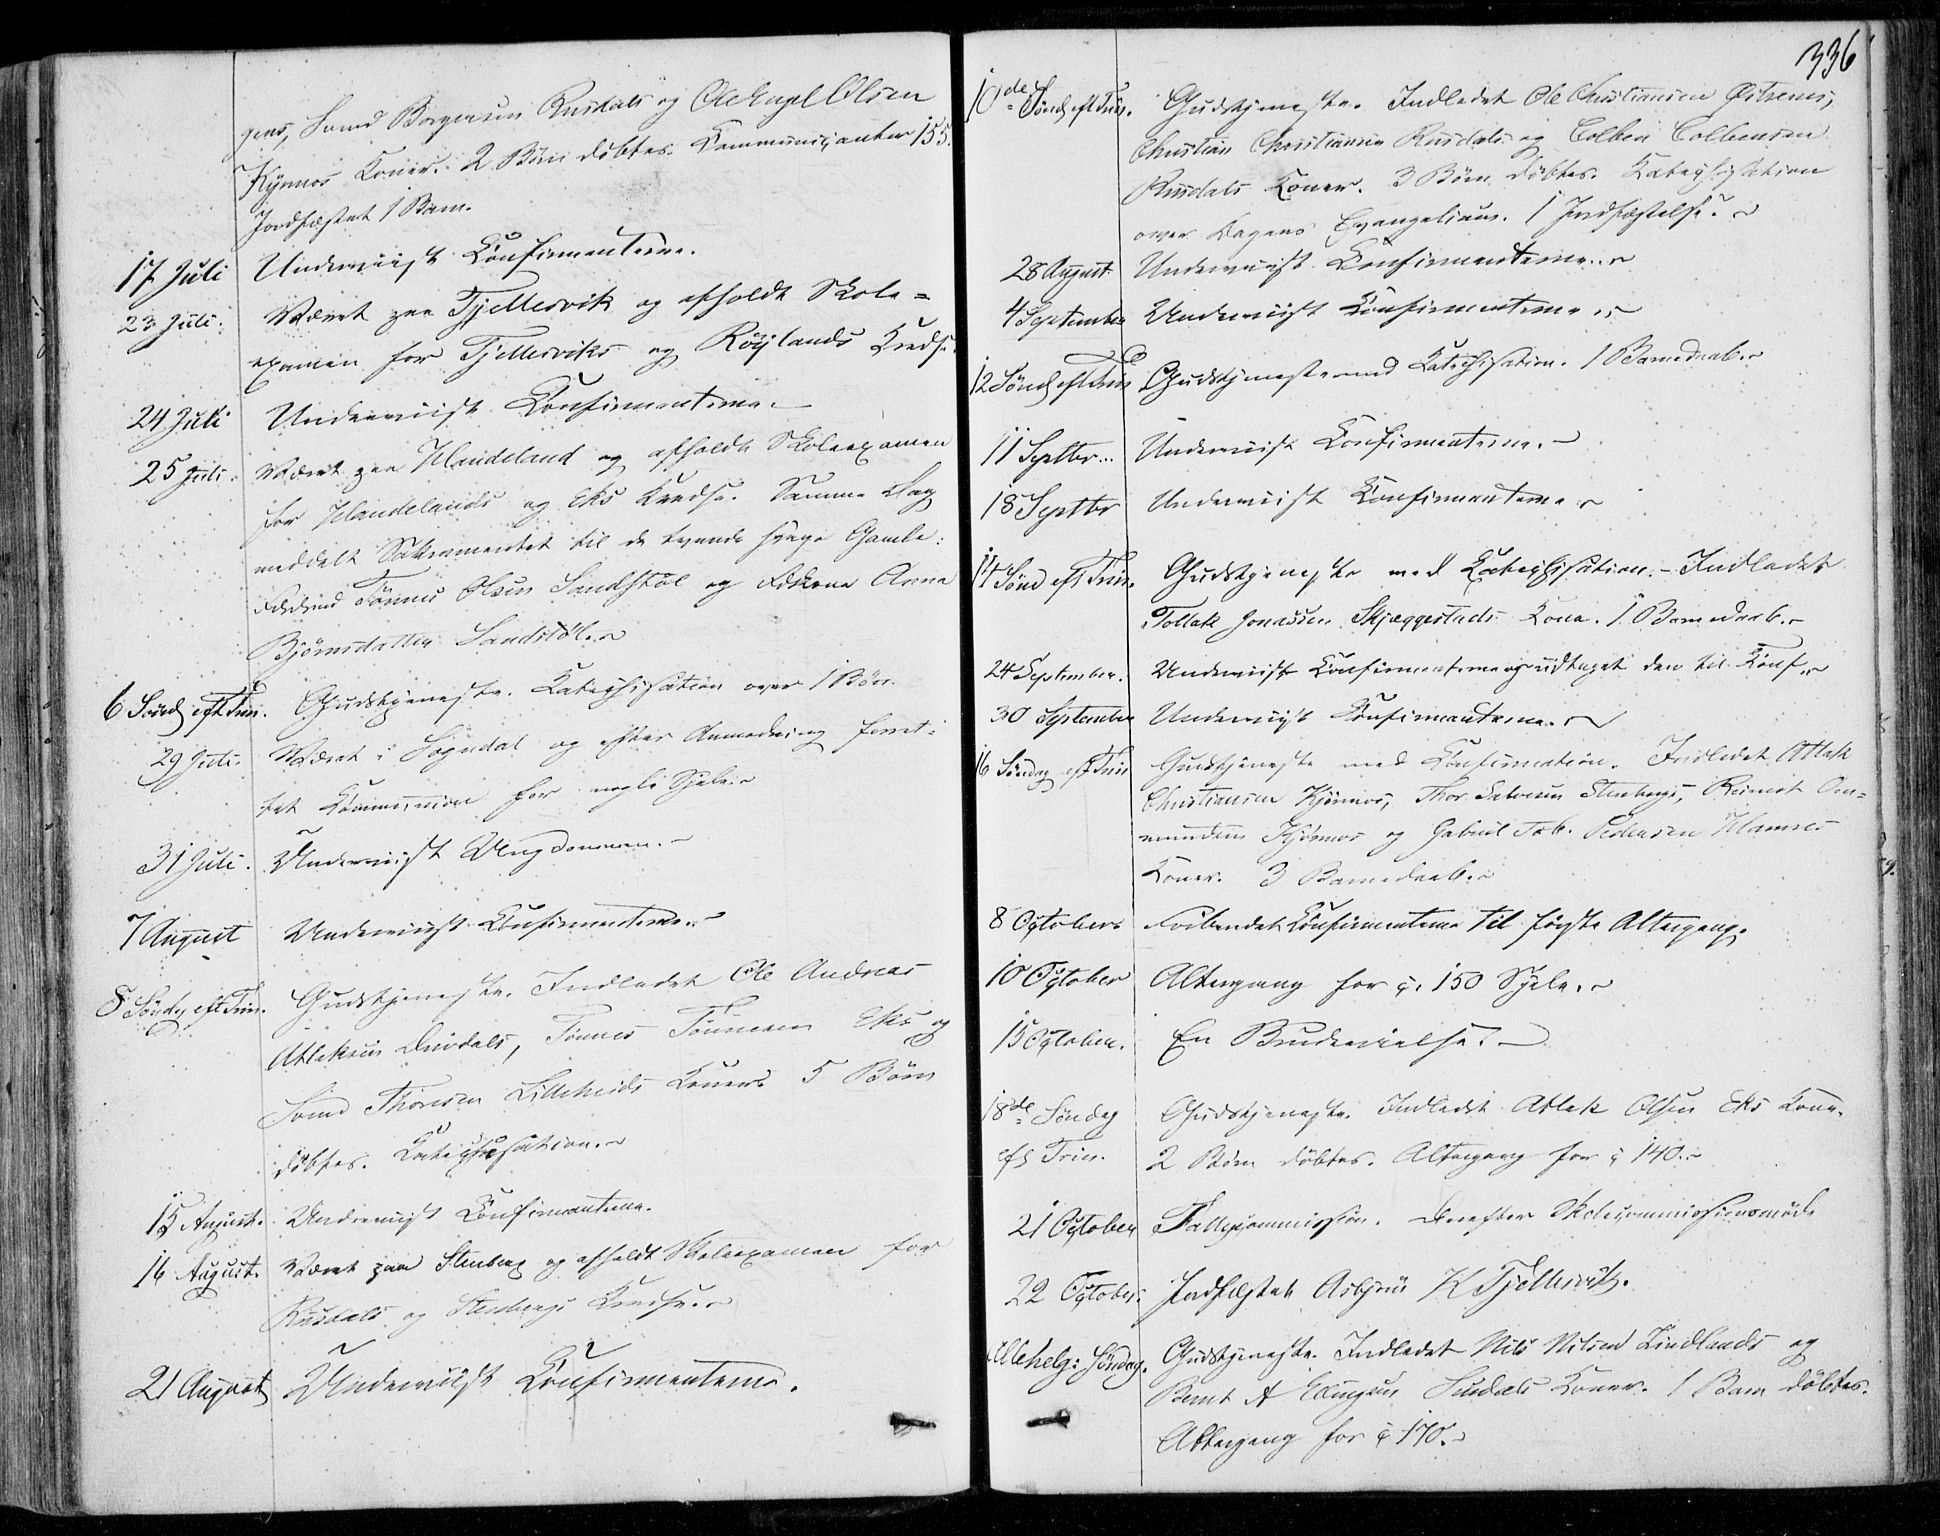 gens, Svend Borgersen Rusdals og Ole Engel Olsen
Kjørmos Koner. 2 Børn døbtes. Kommunicanter 155.
Jordfæstet 1 Barn.
17 Juli Underviist Confirmanterne.
23 Juli. Været paa Fjellesvik og afholdt Skole=
examen for Fjellesviks og Røylands Kredse.
24 Juli Underviist Confirmanterne.
25 Juli. Været paa Haudeland og afholdt Skoleexamen
for Haudelands og Eks Kredse. Samme Dag
meddelt Sakramentet til de tvende syge Gamle:
Tønnes Olsen Sandstøl og Anna
Bjørnsdatter Sandstøl.
6 Sønd eft Trin. Gudstjeneste. Katechisation over 1 Bøn.
29 Juli. Været i Sogndal og efter Anmodning forret-
tet Communion for nogle Sjele.
31 Juli. Underviist Ungdommen.
7 August Underviist Confirmanterne.
8 Søndg eft Trin. Gudstjeneste. Indledet Ole Andreas
Atleksen Duvdals, Tønnes Tønnesen Eks og
Svend Thoresen Lilleheids Koner. 5 Børn
døbtes. Katechisation.
15 August. Underviist Confirmanterne.
16 August. Været paa Stenberg og afholdt Skoleexamen for
Rusdals og Stenbergs Kredse.
21 August Underviist Confirmanterne.
336
10de Sønd eft Trin. Gudstjeneste. Indledet Ole Christiansen Østrems,
Christian Christiansen Rusdals og Colben Colbensen
Rusdals Koner. 3 Børn døbtes. Katechisation
over Dagens Evangelium. 1 Jordfæstelse.
28 August Underviist Confirmanterne.
4 September Underviist Confirmanterne.
12 Sønd eft Trin Gudstjeneste med Katechisation. 1 Barnedaab.
11 Septbr. Underviist Confirmanterne.
18 Septbr Underviist Confirmanterne.
14 Sønd eft Trin. Gudstjeneste med Katechisation. - Indledet
Tollak Jonassen Skjæggestads Kone. 1 Barnedaab.
24 September. Underviist Confirmanterne og udtaget dem til Conf.
30 September Underviist Confirmanterne.
16 Søndag eft Trin Gudstjeneste med Confirmation. Indledet Atlak
Christiansen Kjørmos, Thor Salvesen Stenbergs, Reinert Om=
mundsen Kjørmos og Gabriel Tob. Pedersen Hamres
Koner. 3 Barnedaab.
8 October Forberedet Confirmanterne til første Altergang.
10 October Altergang for c. 150 Sjele.
15 October. En Brudevielse.
18de Søndag Gudstjeneste. Indledet Atlak Olsen Eks Kone.
eft Trin. 2 Børn døbtes. Altergang for c 140.
21 October Fattigcommission. Derefter Skolecommissionsmøde
22 October. Jordfæstet Asbjørn K Fjellesvik.
Allehelg: Søndag. Gudstjeneste. Indledet Nils Nilsen Lindlands og
Bernt A Koner. 1 Barn døbtes.
Altergang for c 170.